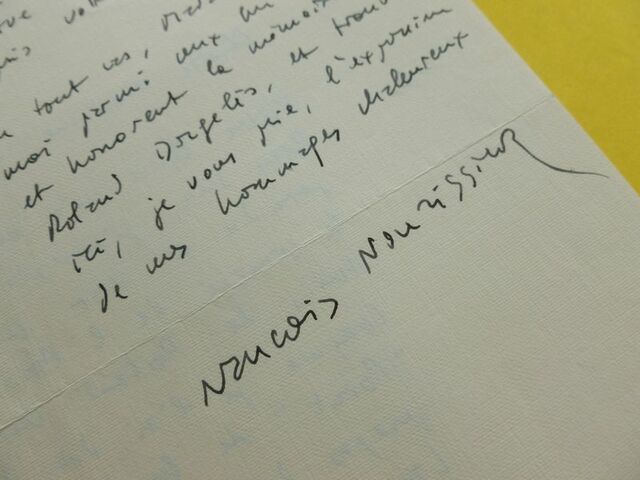 tout cas,
moi parmi ceux qui
et honorent la mémoire
Roland Dorgelès, et trouver
ici, je vous prie, l'expression
de mes hommages chaleureux
François Nourissier